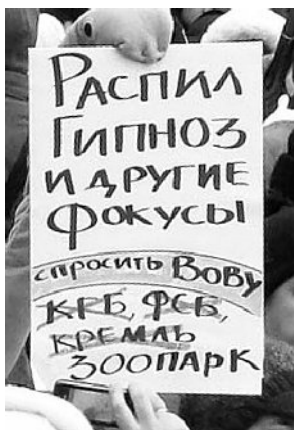 РАСПИЛ
ГИПНОЗ
И ДРУГИЕ
ФОКУСЫ
СПРОСИТЬ ВОВУ
КГБ, ФСБ,
КРЕМЛЬ
ЗООПАРК